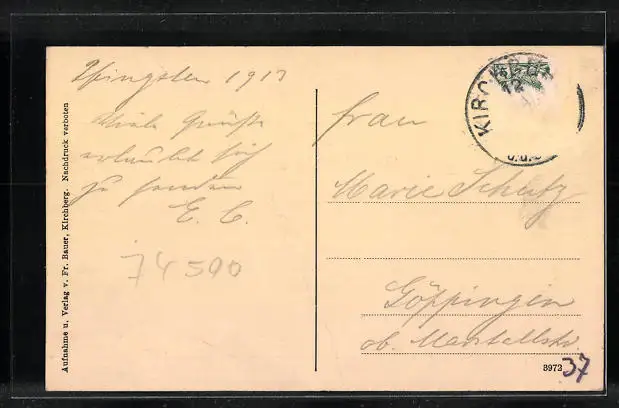 Pfingsten 1913
Viele Grüße
erlaubt sich
zu senden
E. C.
74590
Aufnahme u. Verlag v. Fr. Bauer, Kirchberg. Nachdruck verboten
KIRCHBERG
12
Frau
Marie Schütz
Göppingen
ob. Marstallstr.
8973
37